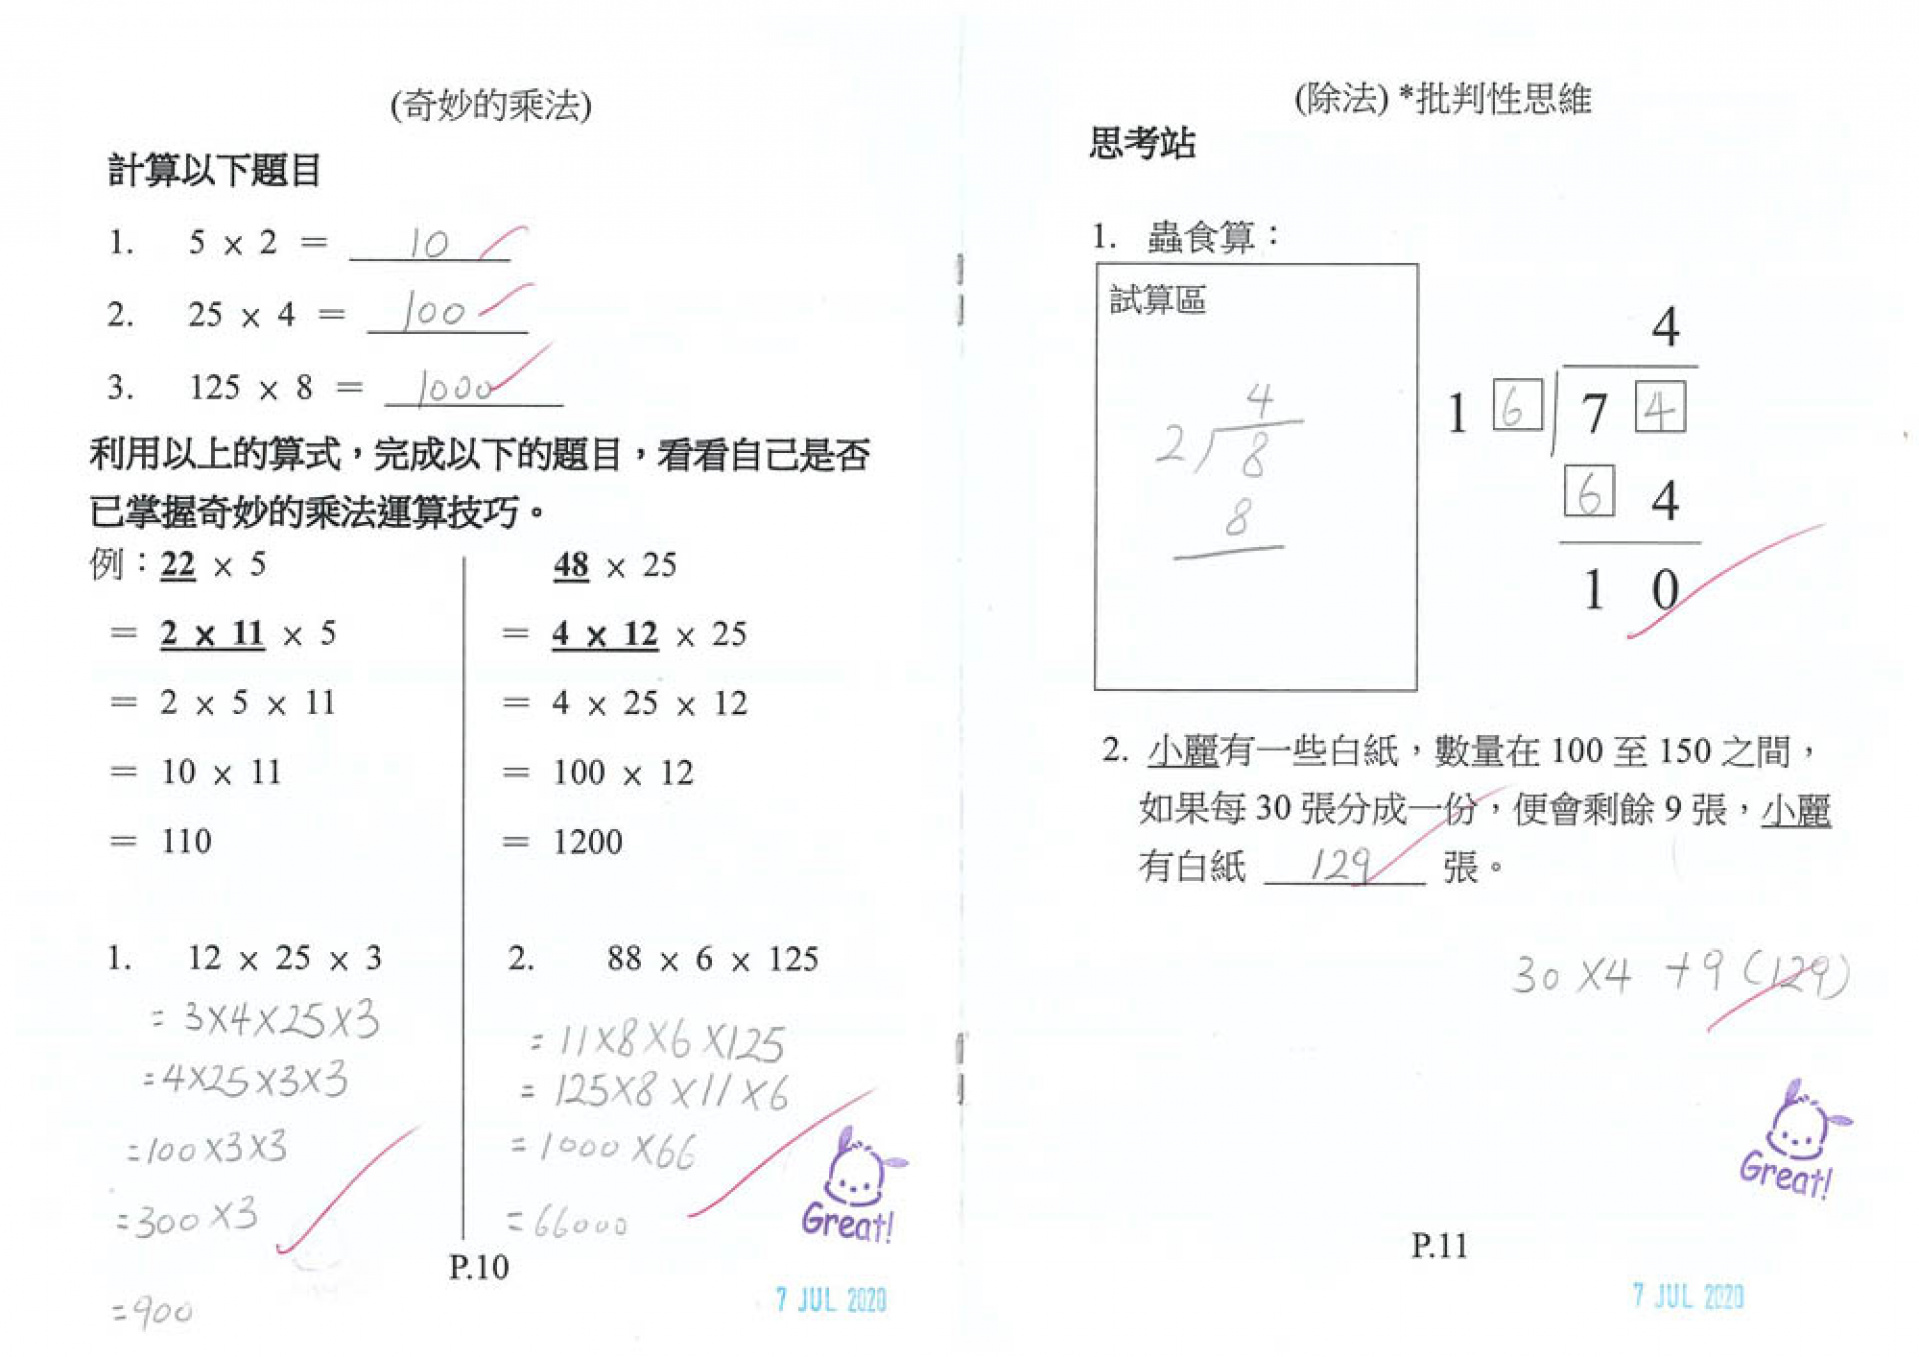 (奇妙的乘法)
計算以下題目
1. 5 × 2 = 10
2. 25 × 4 = 100
3. 125 × 8 = 1000
利用以上的算式，完成以下的題目，看看自己是否
已掌握奇妙的乘法運算技巧。
例：22 × 5
= 2 × 11 × 5
= 2 × 5 × 11
= 10 × 11
= 110
48 × 25
= 4 × 12 × 25
= 4 × 25 × 12
= 100 × 12
= 1200
1. 12 × 25 × 3
= 3×4×25×3
= 4×25×3×3
= 100×3×3
= 300×3
= 900
2. 88 × 6 × 125
= 11×8×6×125
= 125×8×11×6
= 1000×66
= 66000
Great!
P.10
7 JUL 2020
(除法) *批判性思維
思考站
1. 蟲食算：
試算區
4
2 8
8
4
1 6 7 4
6 4
1 0
2. 小麗有一些白紙，數量在 100 至 150 之間，
如果每 30 張分成一份，便會剩餘 9 張，小麗
有白紙 129 張。
30×4 +9 (129)
Great!
P.11
7 JUL 2020